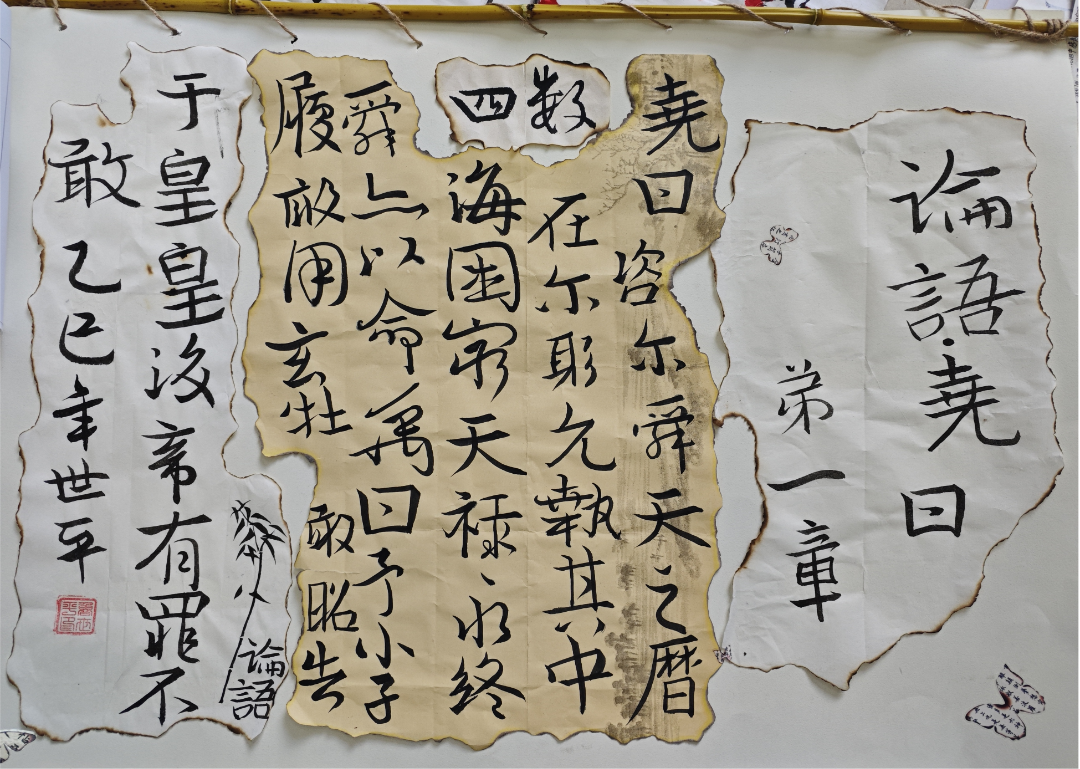 論語·堯曰
第一章
堯曰咨尔舜天之暦
数在尔躬允執其中
四海困穷天禄永終
舜亦以命禹曰予小子
履敢用玄牡敢昭告
于皇皇後帝有罪不
敢乙巳年世平
論語